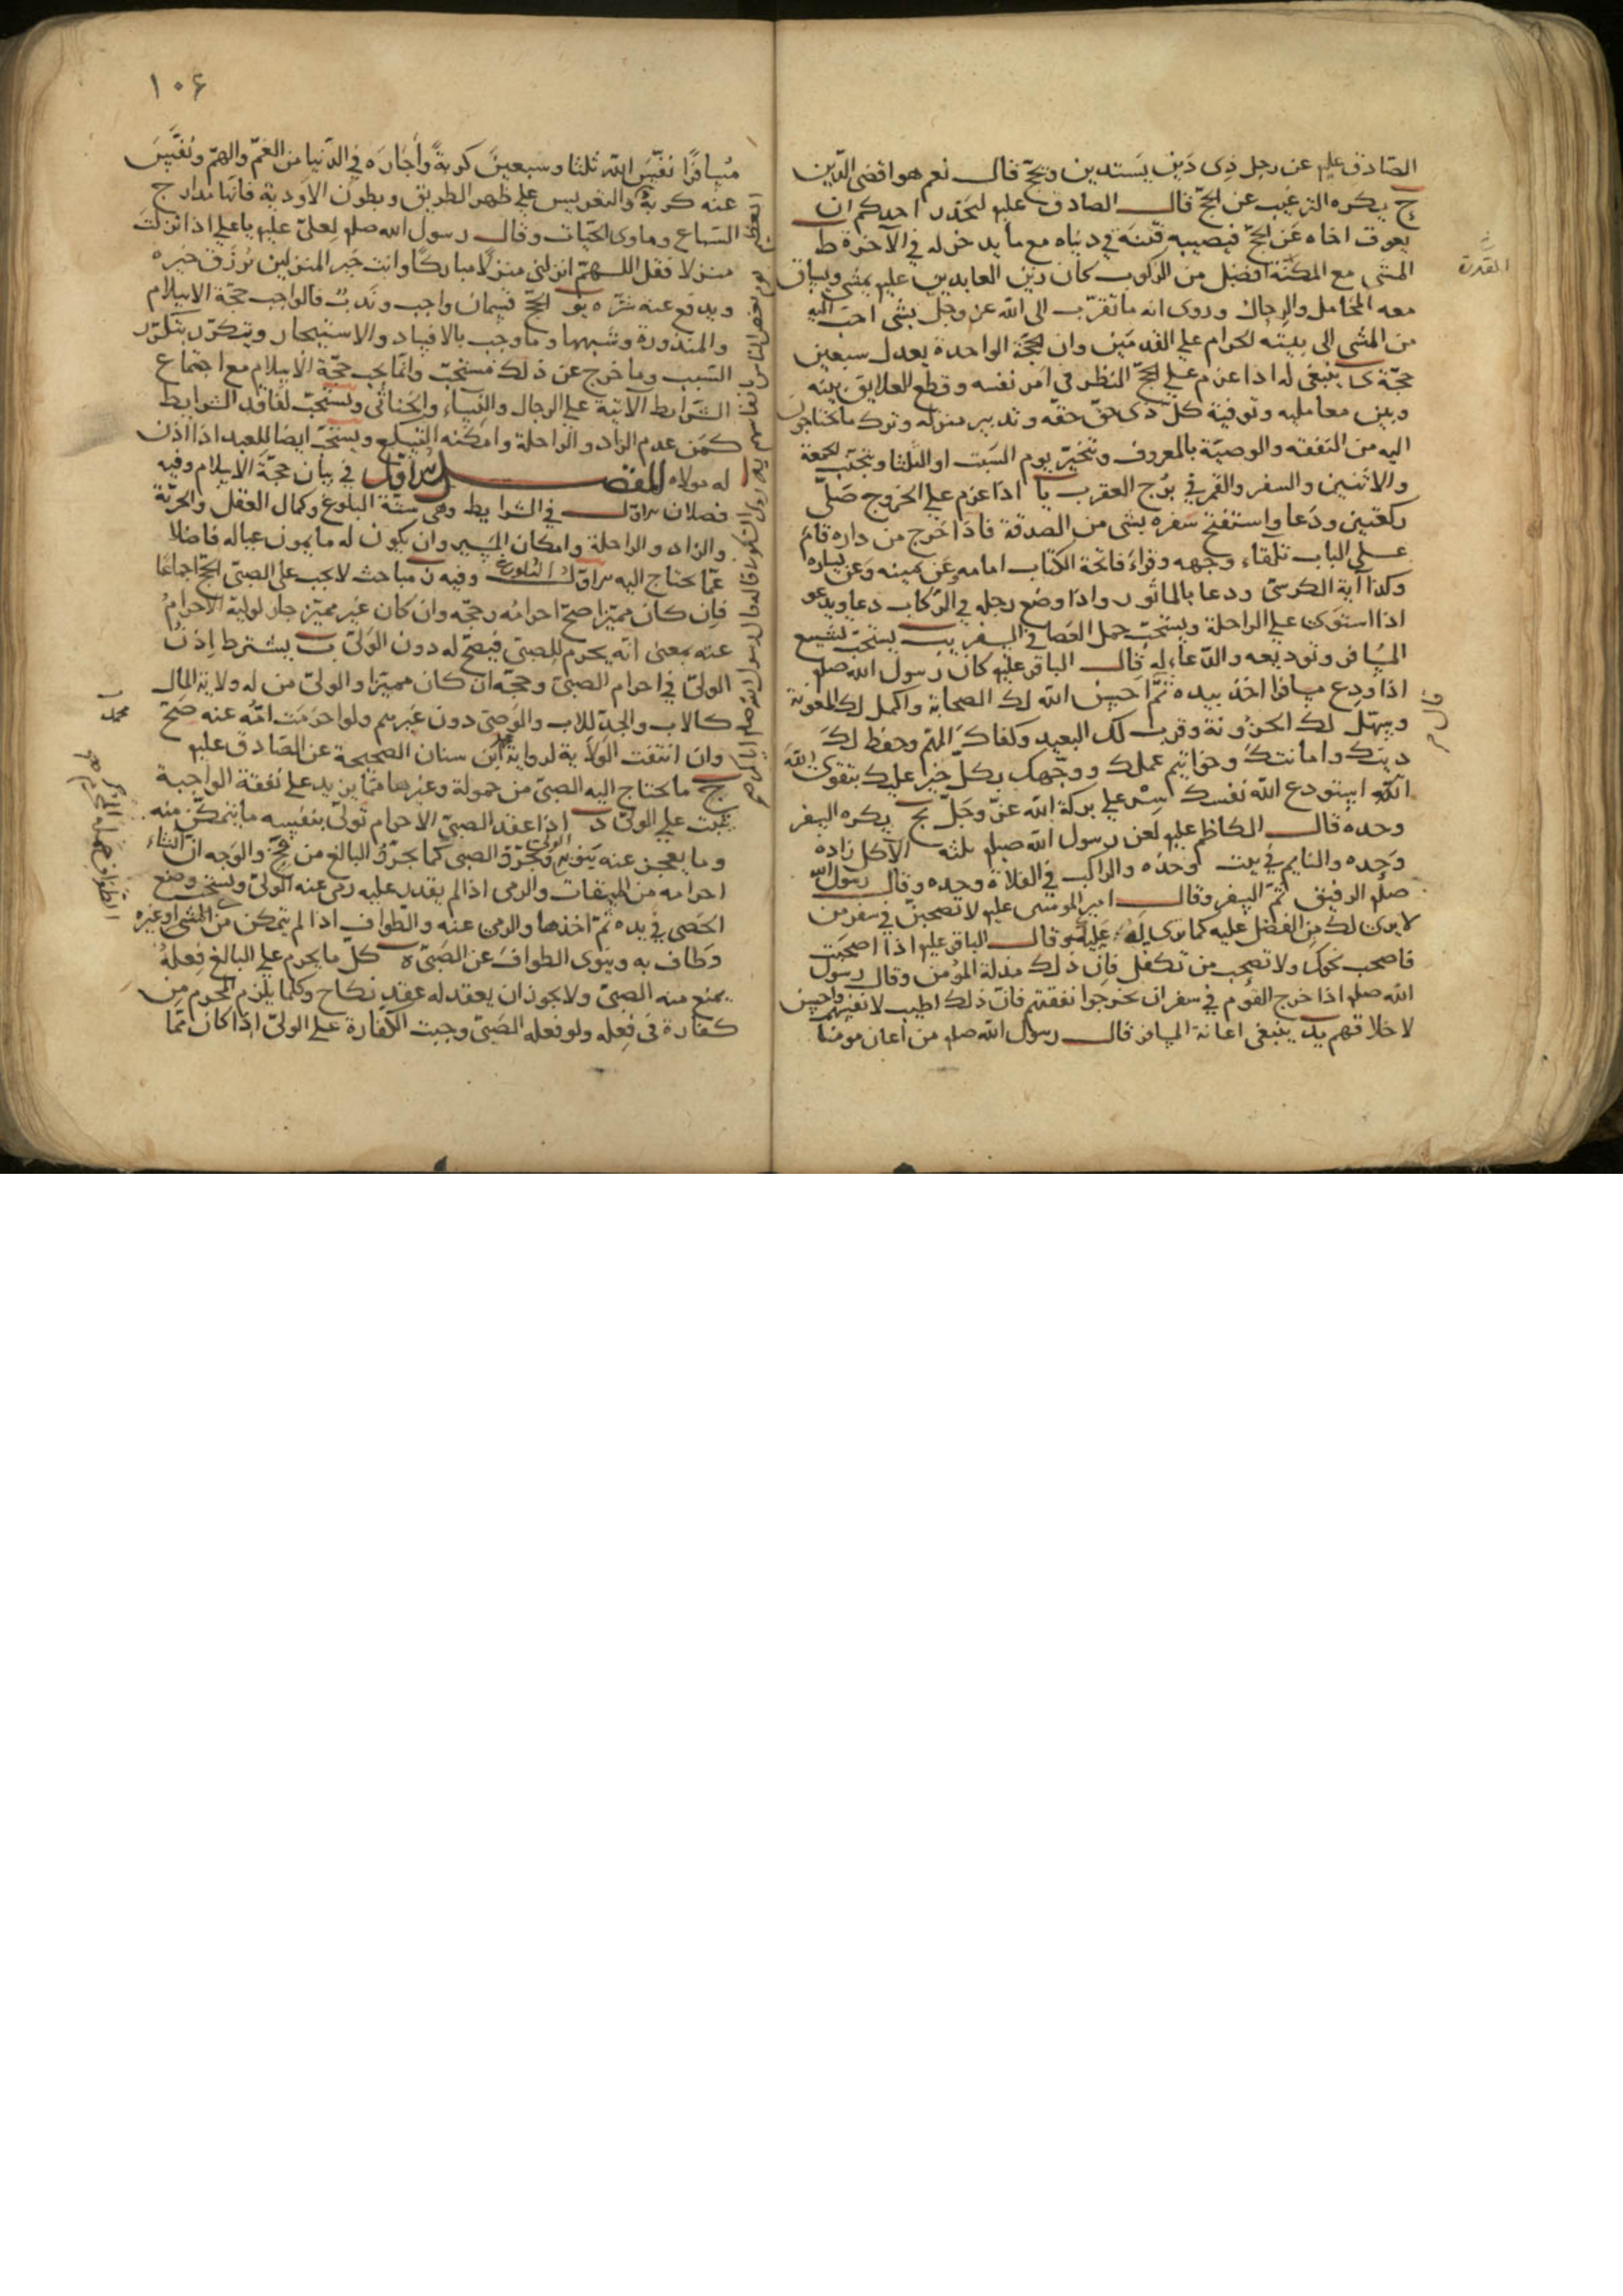 الصّادق عليه عن رجل ذى دَين يَستدين ويحجّ قال نعم هو اقضى للدّين
ح يكره الترغيب عن الحجّ قال الصادق عليه ليحذر احدكم ان
يعوق اخاه عَن الحجّ فيصيبه فتنة في دنياه مع ما يدخر له في الآخرة ط
المشى مع المكنة افضل من الركوب كان زين العابدين عليه يمشى ويساق
معه المحامل والرحال وروى انه ما تقرّب الى الله عز وجل بشى احبّ اليه
من المشى الى بيته الحرام على القدمَين وان الحجّة الواحدة يعدل سبعين
حجّة ى ينبغى له اذا عزم على الحجّ النظر فى امر نفسه وقطع العلايق بينه
وبين معامليه وتوفية كلّ ذى حقّ حقّه وتدبير منزله وترك ما يحتاجون
اليه من النفقه والوصيّة بالمعروف وتخيّر يوم السَبت او الثلثا ويتجنّب الجمعة
والاثنين والسفر والقمر في برُج العقرب يا اذا عزم على الخروج صَلّى
ركعتين ودَعا واستفتح سَفره بشى من الصدقة فاذا خرج من داره قام
على الباب تلقاء وجهه وقراءَ فاتحة الكتاب امامه وعَن يمينه وعَن يساره
وكذا آية الكرسىّ ودعا بالماثور واذا وضع رجله في الركاب دعا ويدعو
اذا استوى على الراحلة ويستحبّ حمل العَصا في السفر يب يستحبّ تشييع
المسافر وتوديعه والدّعاء له قال الباقر عليه كان رسول الله صلع
اذا ودع مسافرا اخذ بيده ثمّ احسن الله لك الصحابة واكمل لك المعونة
وسهّل لك الحزونة وقرب لك البعيد وكفاك المهمّ وحفظ لك
دينك وامانتك وخواتيم عملك ووجّهك بكلّ خير عليك بتقوى الله
استودع الله نفسك سِر على بركة الله عزّ وجَلّ يج يكره السفر
وحده قال الكاظم عليه لعن رسول الله صلع ثلثة الآكل زاده
وَحده والنايم في بيت وحدَه والراكب في الفلاة وحده وقال رسول الله
صلع الرفيق ثمّ السفر وقال امير المومنين عليه لا تصحبنّ في سفر من
لا يرى لك من الفضل عليه كما ترى له عليك وقال الباقر عليه اذا صحبت
فاصحب نحوك ولا تصحب من تكفل فان ذلك مذلة المؤمن وقال رسول
الله صلع اذا خرج القوم في سفر ان يخرجوا نفقتهم فانّ ذلك اطيب لانفسهم واحسن
لاخلاقهم يد ينبغى اعانة المسافر قال رسول الله صلع من اعان مومنا
القدرة
قال
١٠۶
مُسافرًا نفّسَ الله ثلثا وسبعين كربةً وأجاره في الدّنيا من الغمّ والهمّ ونفّسَ
عنه كربة والتعريس على ظهر الطريق وبطون الاودية فانّها مدارج
السّباع وماوى الحيّات وقال رسول الله صلع لعلىّ عليه يا على اذا نزلت
منزلا فقل اللهمّ انزلنى منزلًا مباركًا وانت خير المنزلين تُرزق خيره
ويدفع عنه شرّه يو الحجّ قسمان واجب وندبٌ فالواجب حجّة الاسلام
والمنذورة وشبهها وما وجب بالافساد والاستيجار ويتكرّر بتكرّر
السّبب وما خرج عن ذلك مستحبّ وانّما يجب حجّة الاسلام مع اجتماع
الشرايط الآتية على الرجال والنساء والخناثى ويستحبّ لفاقد الشرايط
كمَن عدم الزاد والراحلة وامكنه التسكع ويستحبّ ايضا للعبد اذا اذن
له مولاه المقصد الاوّل في بيان حجّة الاسلام وفيه
فصلان الاوّل في الشرايط وهى ستّة البلوغ وكمال العقل والحرّيّة
والزاد والراحلة وامكان المسير وان يكون له ما يمون عياله فاضلا
عمّا يحتاج اليه الاوّل البلوغ وفيه ن مباحث لا يجب على الصبىّ الحجّ اجماعًا
فإن كان مميّزا صحّ احرامُه وحجّه وان كان غير مميّز جاز لوليّه الاحرامُ
عنه بمعنى انه يحرم للصبىّ فيصحّ له دون الوَلىّ ب يشترط اِذن
الولىّ في احرام الصبىّ وحجّه ان كان مميّزا والولىّ من له ولاية المال
كالاب والجدّ للاب والوَصىّ دون غيرهم ولو احرمَت امّه عنه صَحّ
وان انتفت الولاية لرواية ابن سنان الصحيحة عن الصّادق عليه
ج ما يحتاج اليه الصبىّ من حمولة وغيرها ممّا يزيد على نفقة الواجبة
يجب على الولىّ د اذا عقد الصبىّ الاحرام تولّى بنفسه ما يتمكّن منه
وما يعجز عنه ينوبه الولىّ ويجرّد الصبى كما يجرّد البالغ من فخّ والوجه انّ انشاء
احرامه من الميقات والرمى اذا لم يقدر عليه رمى عنه الولىّ ويستحبّ وضع
الحَصى في يده ثمّ اخذها والرمى عنه والطواف اذا لم يتمكن من المشى او غيره
وطاف به وينوى الطواف عن الصَبىّ ه كلّ ما يحرم على البالغ فِعلهُ
يمنع منه الصبىّ ولا يجوز ان يعقد له عقد نكاح وكلما يلزم المحرم من
كفارة فى فِعله ولو فعله الصَبىّ وجبت الكفارة على الولىّ اذا كان ممّا